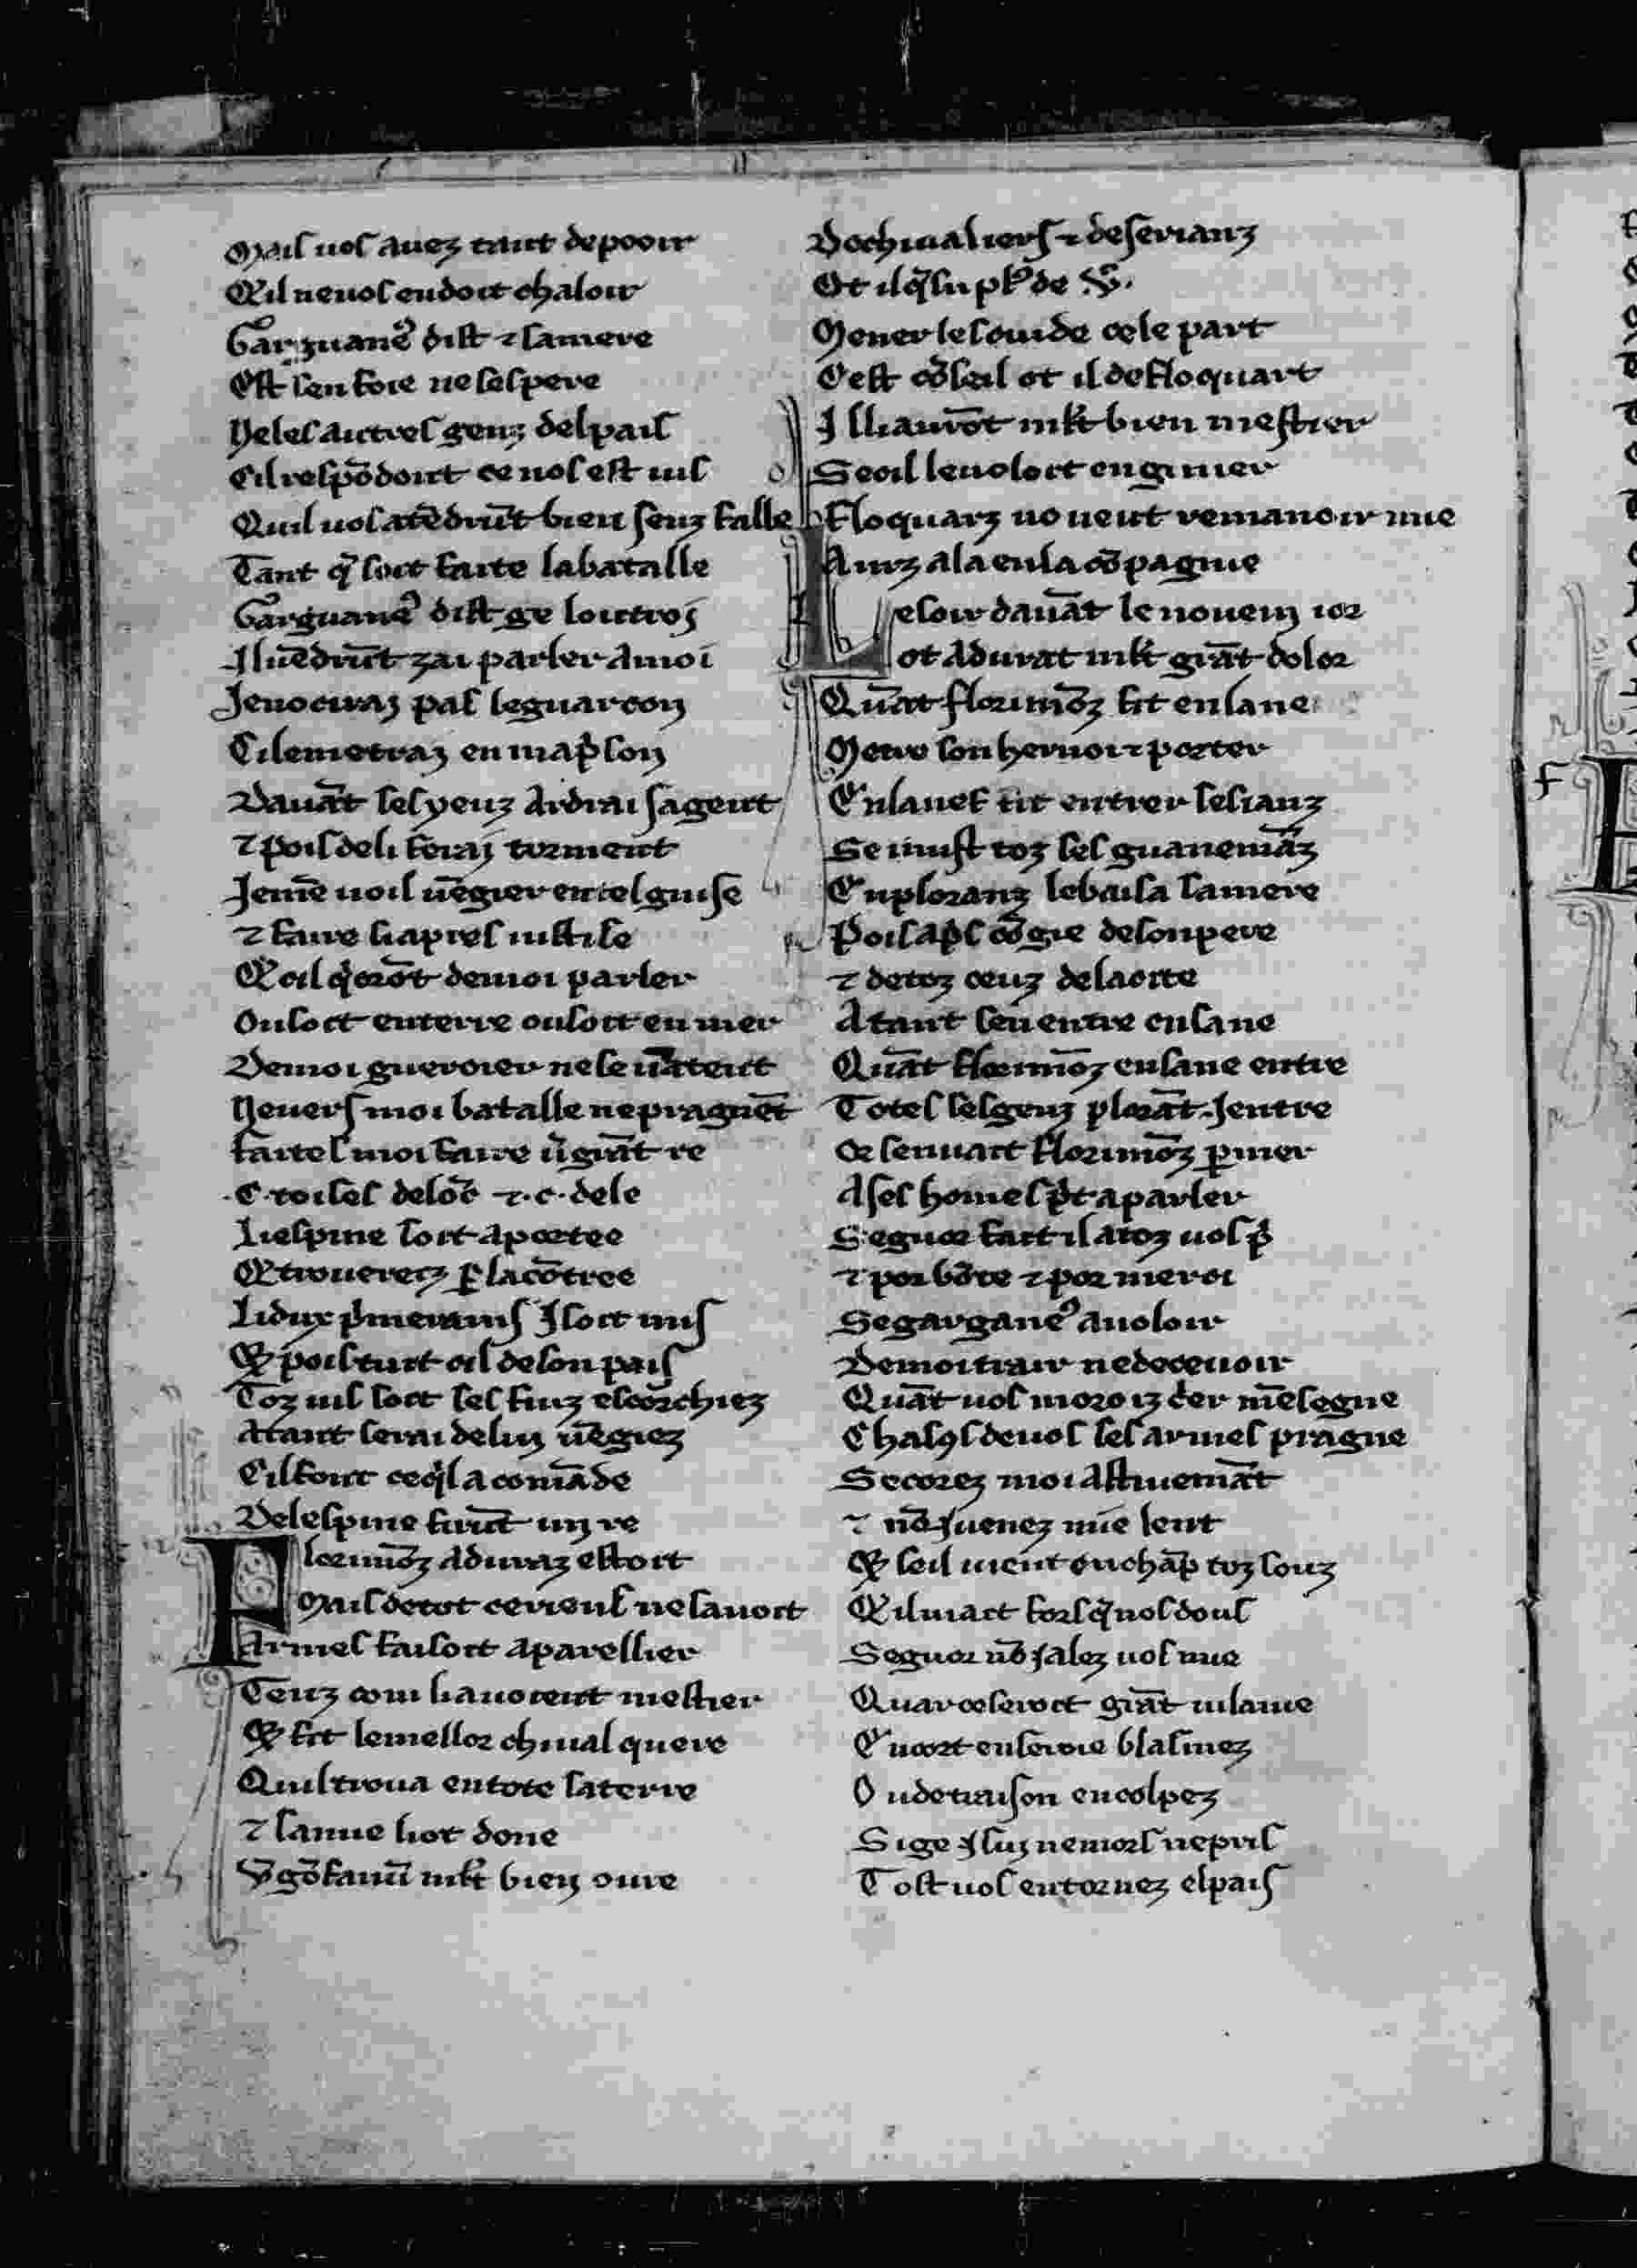 Mais uos auez tant de pooir
Q̃il ne uos en doit chaloir
Garguane᷒ dist ⁊ sa mere
Est sen foie ne ses pere
Ne les autres genz del pais
Cil respõdont ce nos est uis
Quil uos atẽdrũt bien senz falle
Tant q̃ soit faite la batalle
Garguane᷒ dist ge lo outroj
Il uẽdrũt zai parler a moi
Je nociraj pas le guarcon
Cil e metraj en ma p̃son
Dauãt ses yeuz ardrai sa gent
⁊ pois de li feraj torment
Je mẽ uoil uẽgier en tel guise
⁊ faire li apres iustise
Q̃ cil q̃ orõt de moi parler
Ou soit en terre ou soit en mer
De moi gueroier ne se uãtent
Ne uers moi batalle ne pragnẽt
Faites moi faire ũ grãt re
.C. toises de lõc ⁊ .c. de le
Li espine soit aportee
Q̃ trouerez ꝑ la cõtree
Li dux p̃merains J soit mis
Q̃ pois tuit cil de son pais
Toz uis soit ses finz escorchiez
Atant serai de luj uẽgiez
Cil font ce q̃l a comãde
De lespine firũt un re
Florimõz aduraz estoit
Mais de tot ce riens ne sauoit
Armes faisoit aparellier
Teuz com li auoient mestier
Q̃ fit le mellor chiual quere
Quil troua en tote la terre
⁊ sanne li ot done
Vgõ fauũ mlt bien oure
De chiualiers ⁊ de serianz
Ot il q̃s lu plꝰ de .V.
Mener les cuide cele part
Cest cõseil ot il de floquart
Il li aurõt mlt bien mestier
Se cil le uoloit enginier
Floquarz no ueut remanoir mie
Ainz ala en la cõpagnie
Le soir dauãt le nouein ior
Lot adurat mlt grãt dolor
Quãt florimõz fit en la ne
Metre son hernoi ⁊ porter
En la nef fit entrer ses ianz
Se i mist toz ses guanemãz
En ploranz le baisa sa mere
Pois a p̃s cõgie de son pere
⁊ de toz ceuz de la cite
A tant sen entre en la ne
Quãt florimõz en la ne entre
Totes les genz plorãt J entre
Or sen uait florimõz ꝑ mer
A ses homes p̃t a parler
Segnor fait il a toz uos p̃
⁊ por bõte ⁊ por merci
Se gargane᷒ a uoloir
De moi trair ne deceuoir
Quãt uos moroiz c̃er mẽsegne
Chascꝰs de uos ses armes pragne
Secorez moi astiuemãt
⁊ nõ J uenez mie lent
Q̃ se il uient en chãp toz souz
Q̃ il niait fors q̃ nos dous
Segnor nõ J alez uos mie
Quar ce seroit grãt uilanie
En cort en seroie blasmez
Ou de traison encolpez
Si ge J suj ne mors ne pris
Tost uos en tornez el pais